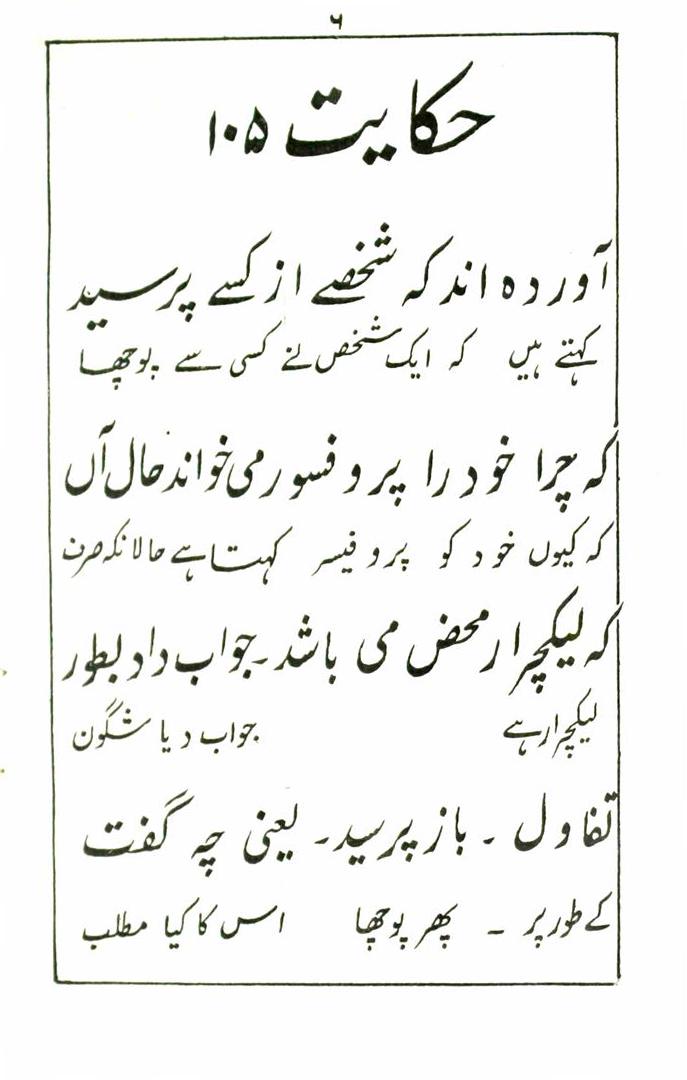 ۶
حکایت ۱۰۵
آوردہ اند کہ شخصے از کسے پرسید
کہتے ہیں کہ ایک شخص نے کسی سے پوچھا
کہ چرا خود را پروفسور می خواند حال آں
کہ کیوں خود کو پروفیسر کہتا ہے حالانکہ صرف
کہ لیکچرار محض می باشد۔ جواب داد بطور
لیکچرار ہے جواب دیا شگون
تفاول ۔ باز پرسید۔ یعنی چہ گفت
کے طور پر ۔ پھر پوچھا اس کا کیا مطلب